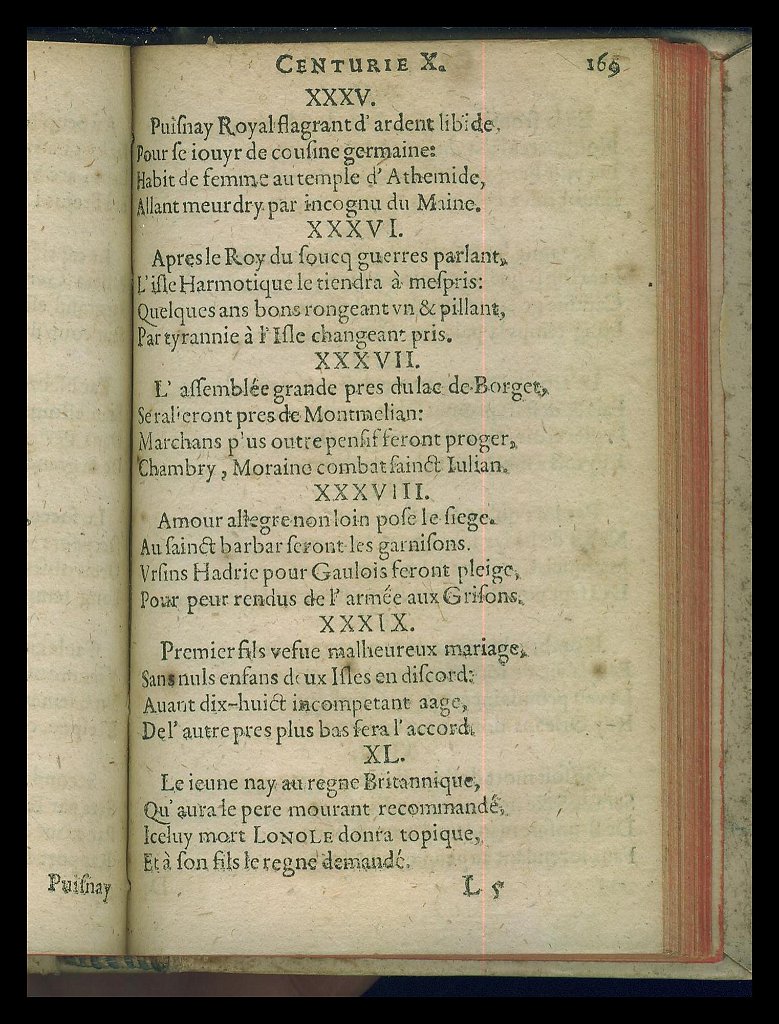 CENTURIE X. 169
XXXV.
Puiſnay Royal flagrant d' ardent libide,
Pour ſe iouyr de couſine germaine:
Habit de femme au temple d' Athemide,
Allant meurdry par incognu du Maine.
XXXVI.
Apres le Roy du ſoucq guerres parlant,
L'iſle Harmotique le tiendra à meſpris:
Quelques ans bons rongeant vn & pillant,
Par tyrannie à l' Iſle changeant pris.
XXXVII.
L' aſſemblée grande pres du lac de Borget,
Se ralieront pres de Montmelian:
Marchans plus outre penſif feront proger,
Chambry, Moraine combat ſainct Iulian.
XXXVIII.
Amour allegre non loin poſe le ſiege.
Au ſainct barbar ſeront les garniſons.
Vrſins Hadrie pour Gaulois feront pleige,
Pour peur rendus de l' armée aux Griſons.
XXXIX.
Premier fils vefue malheureux mariage,
Sans nuls enfans deux Iſles en diſcord:
Auant dix-huict incompetant aage,
De l' autre pres plus bas ſera l' accord.
XL.
Le ieune nay au regne Britannique,
Qu' aura le pere mourant recommandé,
Iceluy mort LONOLE donra topique,
Et à ſon fils le regne demandé.
Puiſnay
L 5